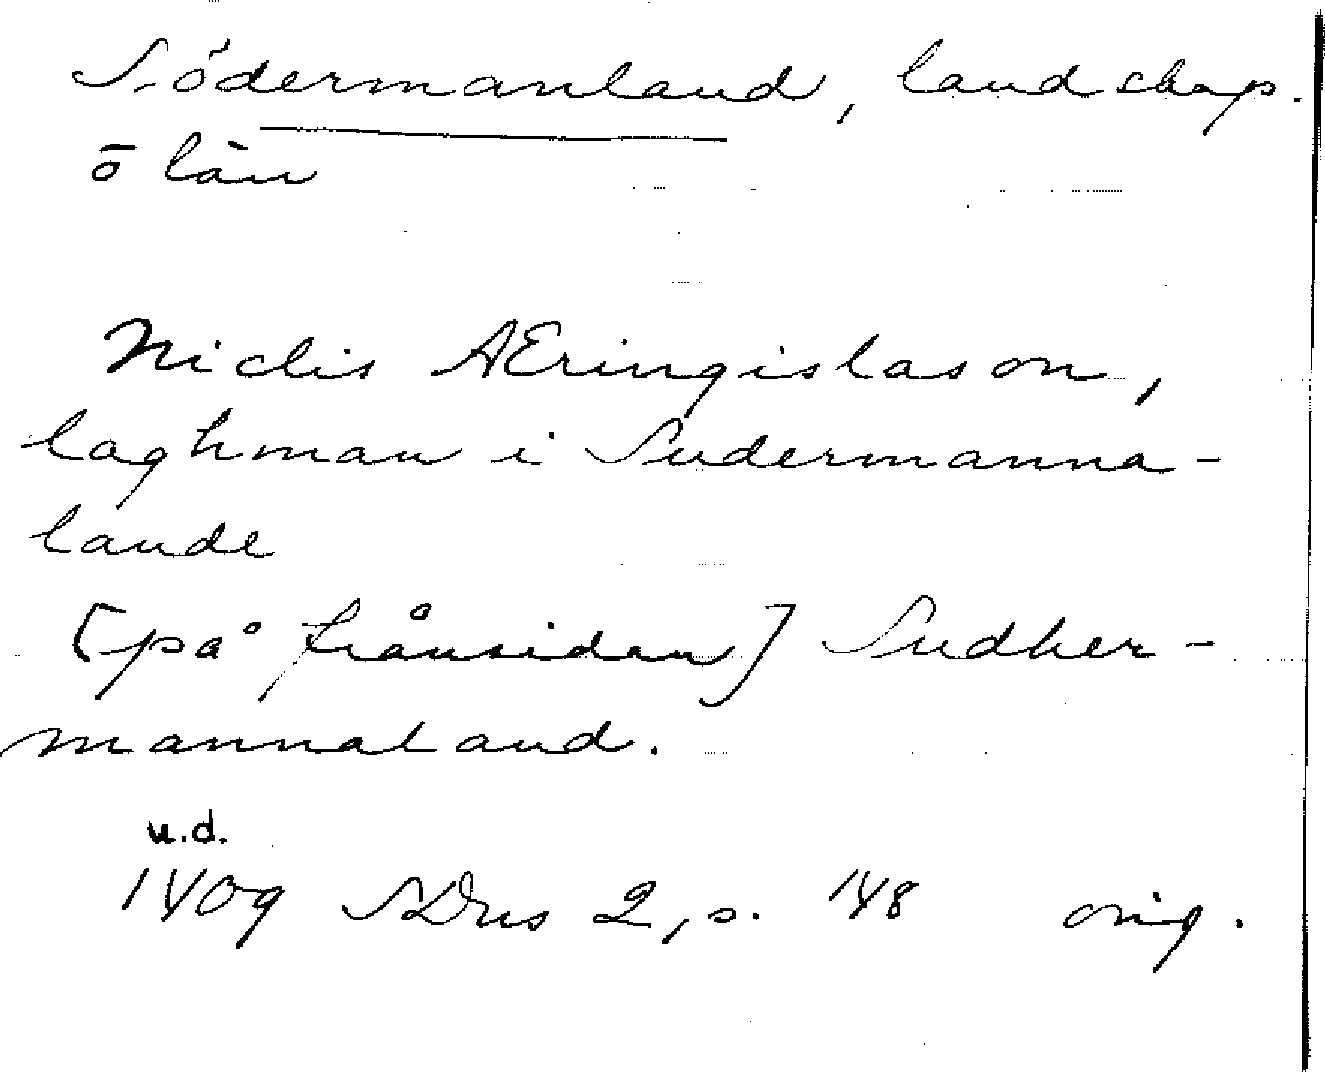 Södermanland, landskap.
o län
Niclis AEringislason,
laghman i Sudermanna-
lande
[på frånsidan] Sudher-
mannaland.
u.d.
1409 SDns 2, s. 148 orig.